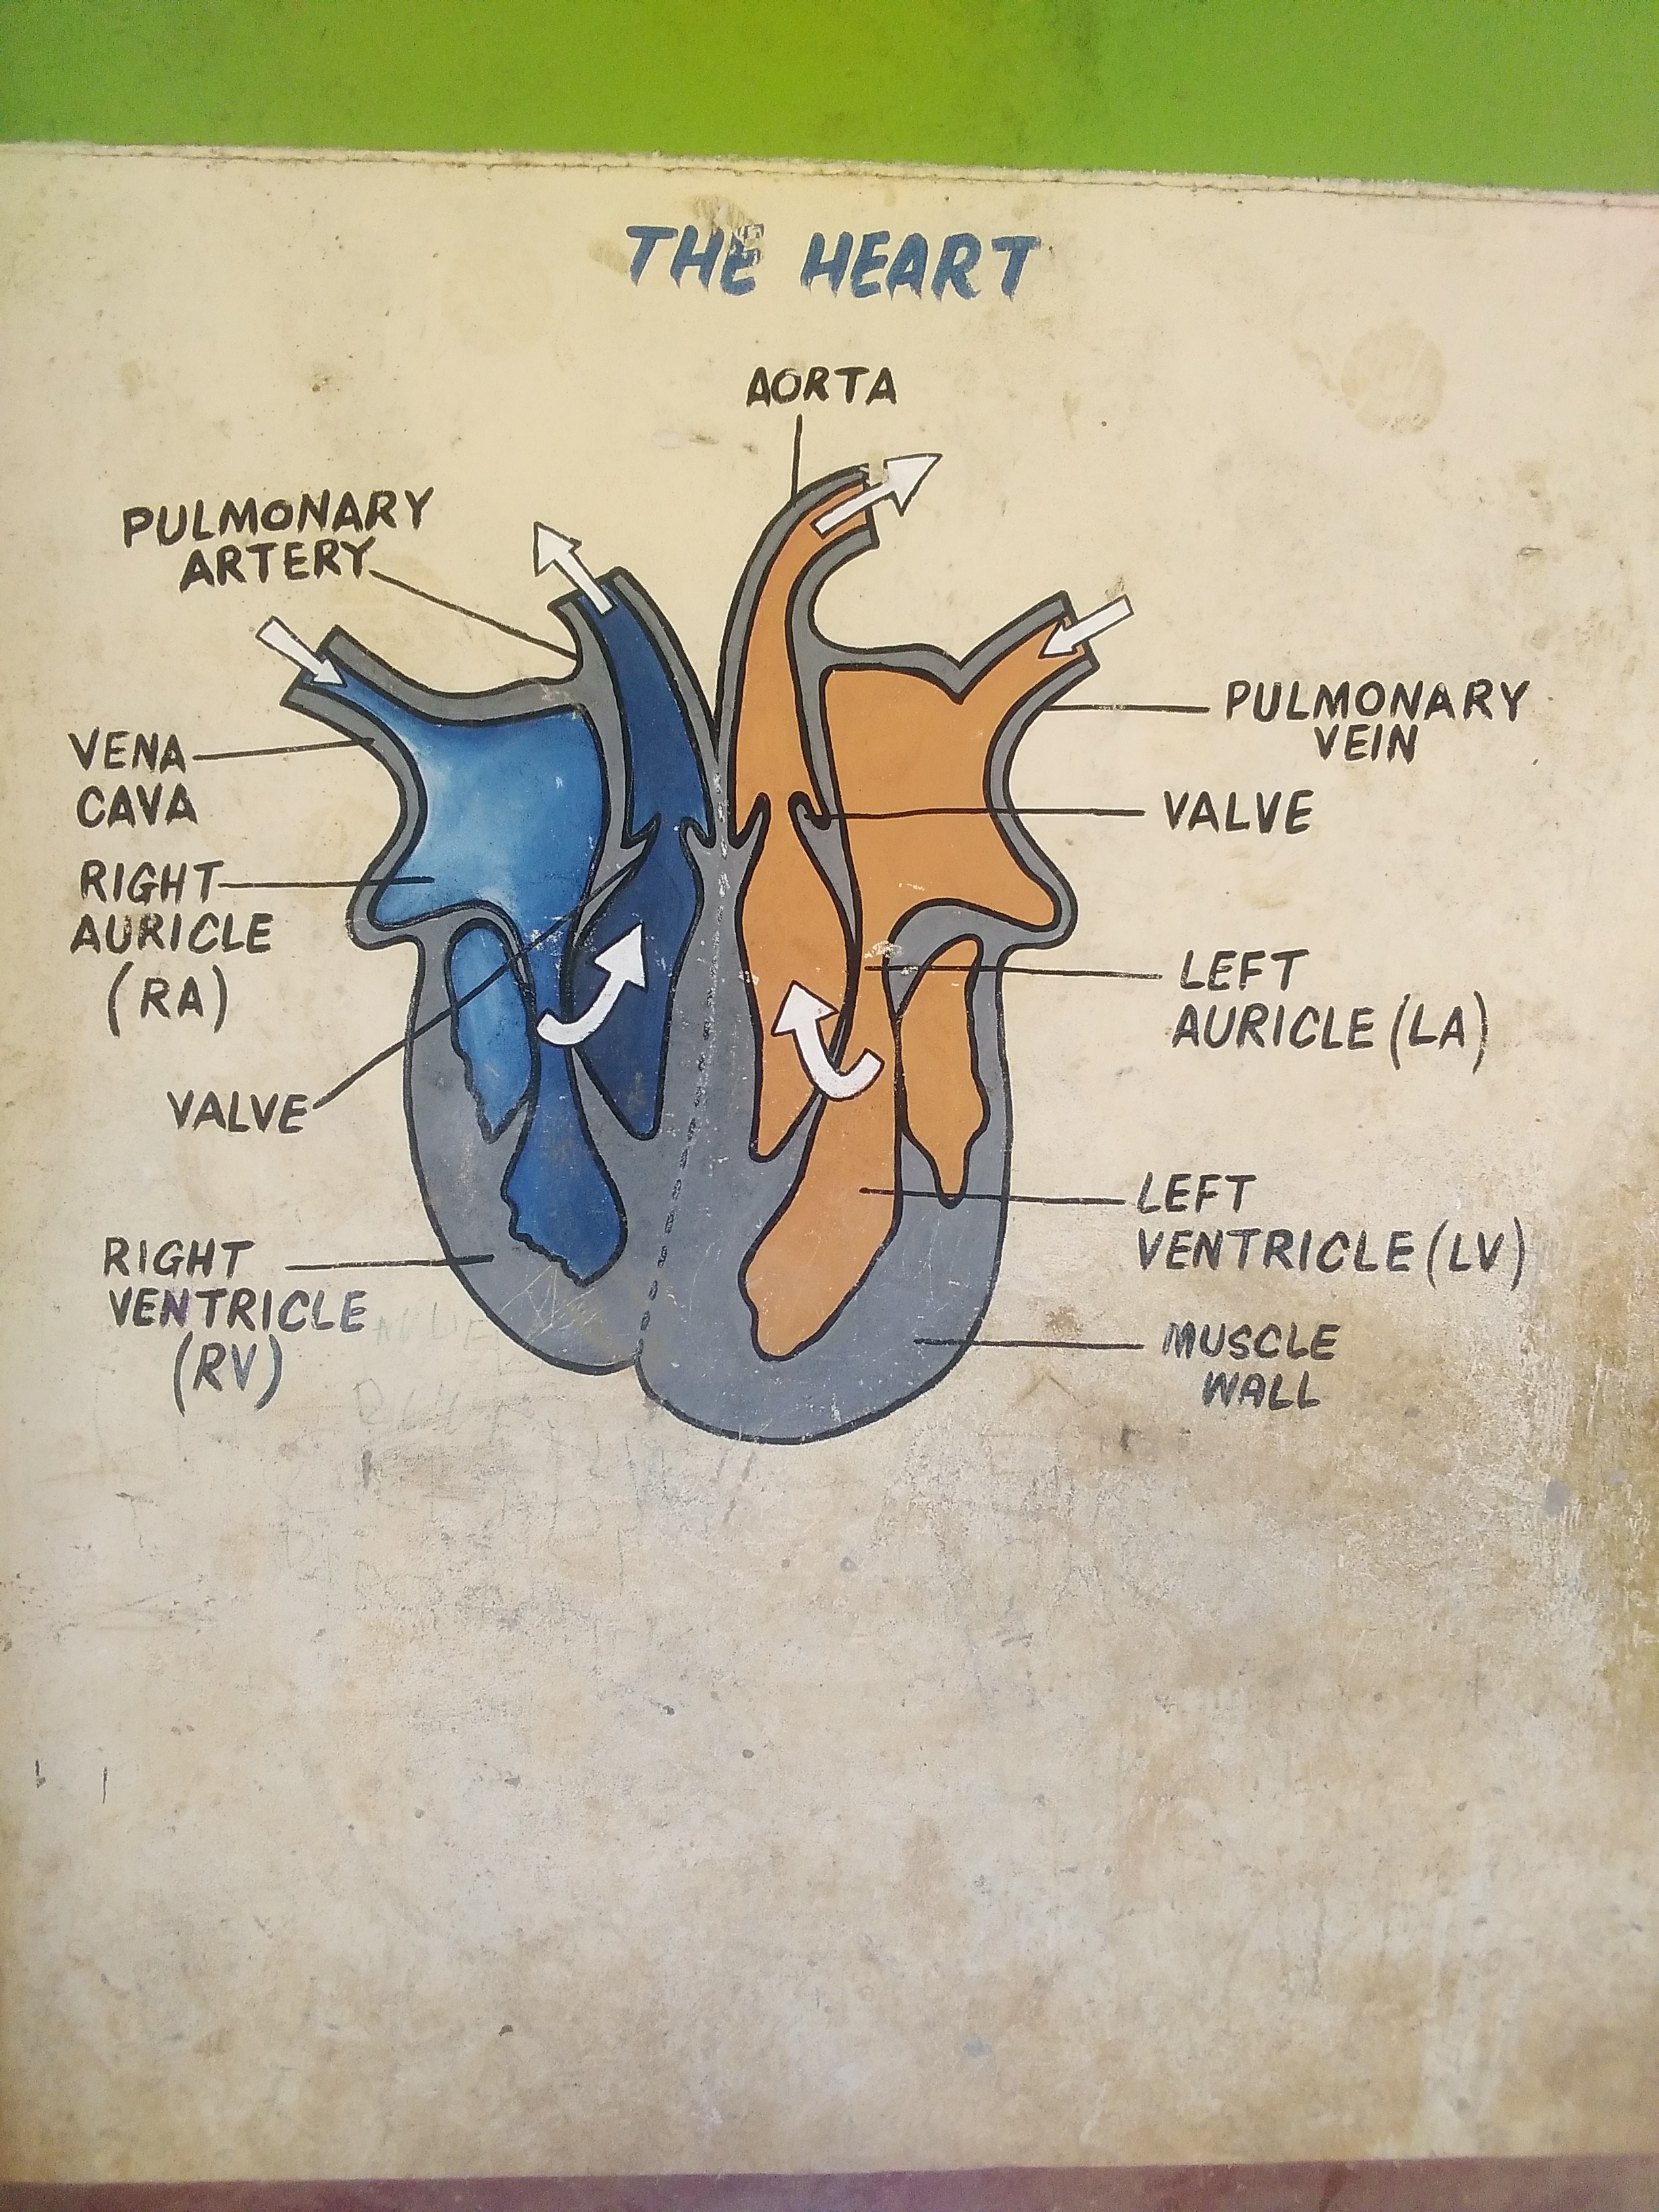 THE HEART
AORTA
PULMONARY
ARTERY
VENA
CAVA
RIGHT
AURICLE
(RA)
VALVE
RIGHT
VENTRICLE
(RV)
PULMONARY
VEIN
VALVE
LEFT
AURICLE (LA)
LEFT
VENTRICLE (LV)
MUSCLE
WALL